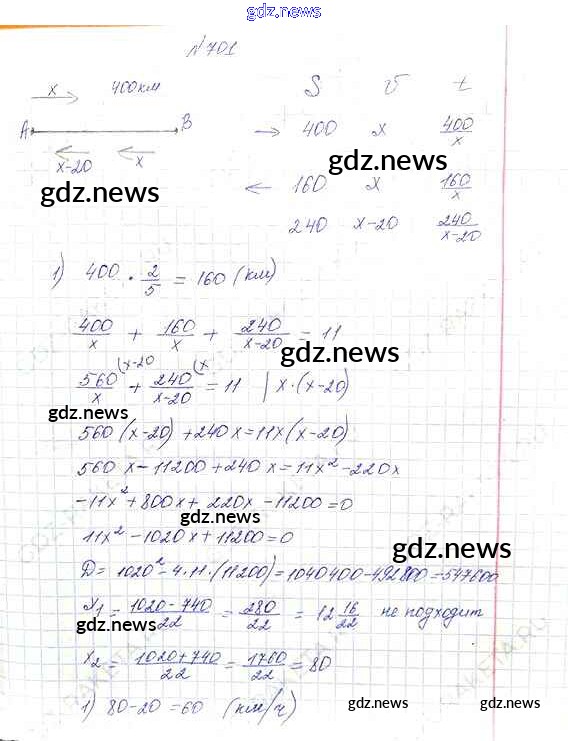 gdz.news
№701
x 400км S v t
A B → 400 x 400/x
x-20 x
gdz.news
gdz.news
← 160 x 160/x
240 x-20 240/x-20
1) 400 · 2/5 = 160 (км)
400/x + 160/x + 240/x-20 = 11
gdz.news
560/x (x-20 + 240/x-20 (x = 11 | x·(x-20)
gdz.news
560 (x-20) + 240x = 11x(x-20)
560x - 11200 + 240x = 11x² - 220x
-11x² + 800x + 220x - 11200 = 0
gdz.news
11x² - 1020x + 11200 = 0
gdz.news
D = 1020² - 4·11·(11200) = 1040400 - 492800 = 547600
x₁ = 1020-740/22 = 280/22 = 12 16/22 не подходит
gdz.news
x₂ = 1020+740/22 = 1760/22 = 80
1) 80-20 = 60 (км/ч)
gdz.news
gdz.news